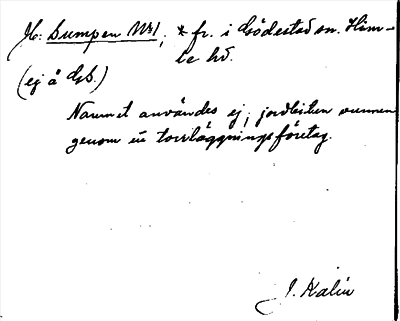 M: Sumpen Nr 1, * fr. i Gödestad sn. Him-
le hd.
(ej å Gs.)
Namnet användes ej; jordbiten vunnen
genom ett torrläggningsföretag.
J. Kalén